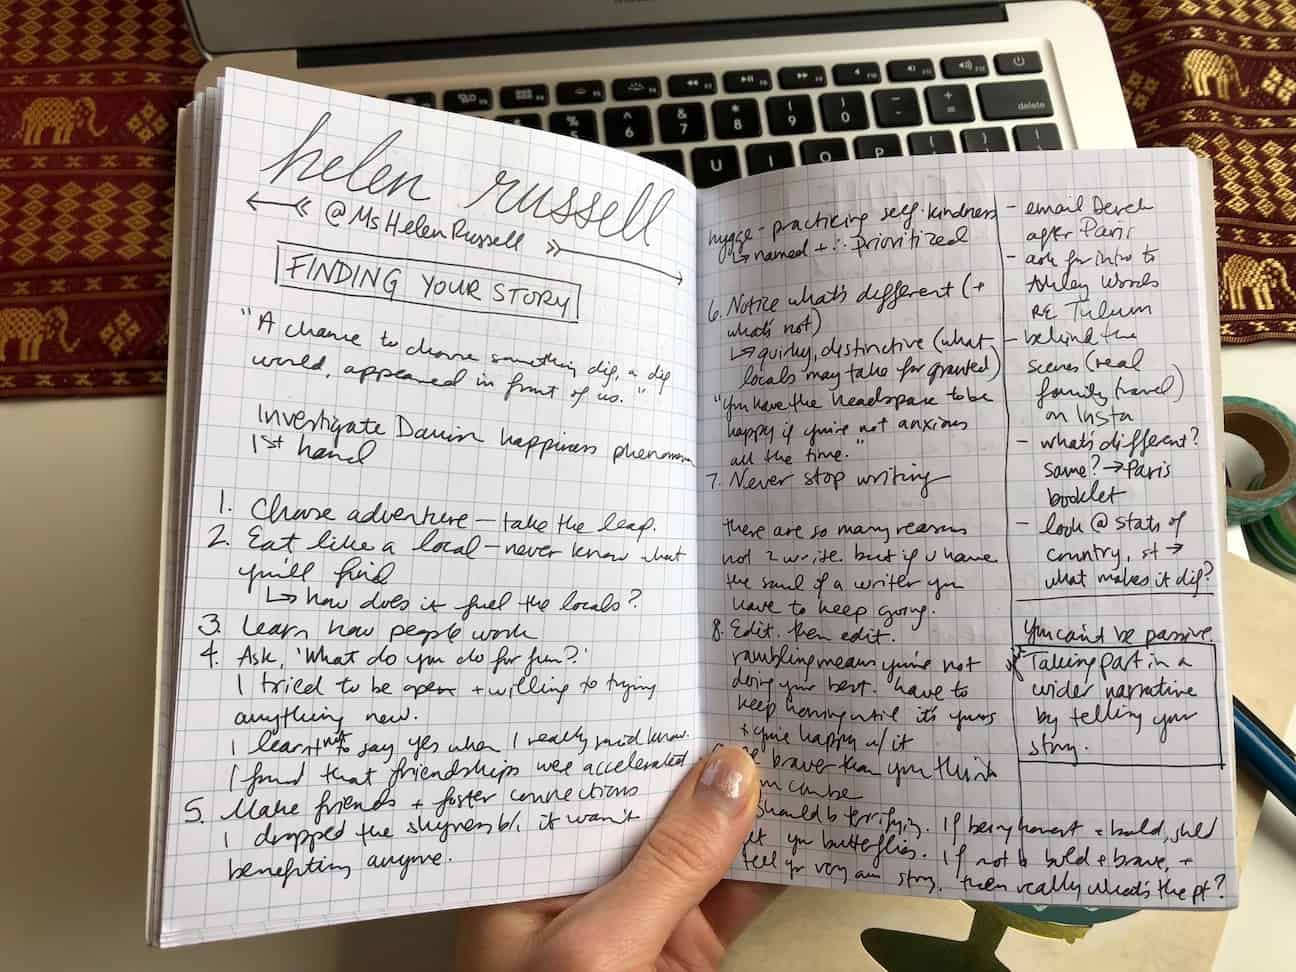 helen russell
@MsHelenRussell
FINDING YOUR STORY
"A chance to choose something dif, a dif
world, appeared in front of us."
Investigate Danish happiness phenomenon
1st hand
1. Choose adventure – take the leap.
2. Eat like a local – never know what
you'll find
↳ how does it fuel the locals?
3. Learn how people work
4. Ask, 'What do you do for fun?'
I tried to be open + willing to trying
anything new.
I learnt not to say yes when I really mean know.
I found that friendships were accelerated
5. Make friends + foster connections
I dropped the shyness b/c it wasn't
benefiting anyone.
hygge – practicing self-kindness
↳ named + ∴ prioritized
6. Notice what's different (+
what's not)
↳ quirky, distinctive (what
locals may take for granted)
"you have the headspace to be
happy if you're not anxious
all the time."
7. Never stop writing
there are so many reasons
not 2 write. but if u have
the soul of a writer you
have to keep going.
8. Edit. then edit.
rambling means you're not
doing your best. have to
keep honing until it's yours
+ you're happy w/ it
braver than you think
can be
should b terrifying. If being honest + bold, shld
get you butterflies. If not b bold + brave, +
feel for your own story, then really what's the pt?
- email Derek
after Paris
- ask for intro to
Ashley Words
RE Tulum
- behind the
scenes (real
family travel)
on Insta
- what's different?
same? → Paris
booklet
- look @ stats of
country, st →
what makes it dif?
You can't be passive.
Taking part in a
wider narrative
by telling your
story.
delete
6
7
8
9
0
U
I
O
P